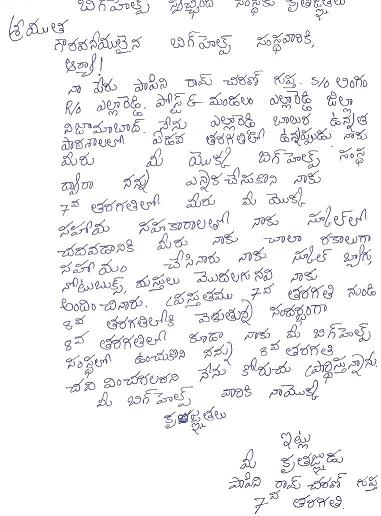 బిగ్‌హెల్ప్ స్వచ్ఛంద సంస్థకు కృతజ్ఞతలు
శ్రీయుత
గౌరవనీయులైన బిగ్‌హెల్ప్ సంస్థవారికి,
ఆర్యా!
నా పేరు పాపిని రామ్ చరణ్ గుప్త. S/o లింగం
R/o ఎల్లారెడ్డి. పోస్ట్ & మండలం ఎల్లారెడ్డి జిల్లా
నిజామాబాద్. నేను ఎల్లారెడ్డి బాలుర ఉన్నత
పాఠశాలలో ఏడవ తరగతిలో ఉన్నప్పుడు నాకు
మీరు మీ యొక్క బిగ్‌హెల్ప్ సంస్థ
ద్వారా నన్ను ఎన్నిక చేసుకొని నాకు
7వ తరగతిలో మీరు మీ యొక్క
సహాయ సహకారాలతో నాకు స్కూల్‌లో
చదవడానికి మీరు నాకు చాలా రకాలుగా
సహాయం చేసినారు నాకు స్కూల్ బ్యాగు,
నోటుబుక్స్, దుస్తులు మొదలగునవి నాకు
అందించినారు. ప్రస్తుతము 7వ తరగతి నుండి
8వ తరగతిలోకి వెళుతున్న సందర్భంగా
8వ తరగతిలో కూడా నాకు మీ బిగ్‌హెల్ప్
సంస్థలో ఉంచుకొని నన్ను 8వ తరగతి
చదివించగలరని నేను కోరుచు ప్రార్థిస్తున్నాను.
మీ బిగ్‌హెల్ప్ వారికి నాయొక్క
కృతజ్ఞతలు
ఇట్లు
మీ కృతజ్ఞుడు
పాపిని రామ్ చరణ్ గుప్త
7వ తరగతి.